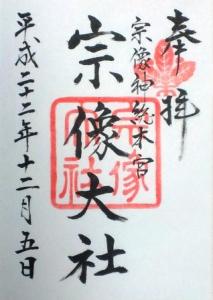 奉拝
宗像神総本宮
宗像大社
平成二十二年十二月五日